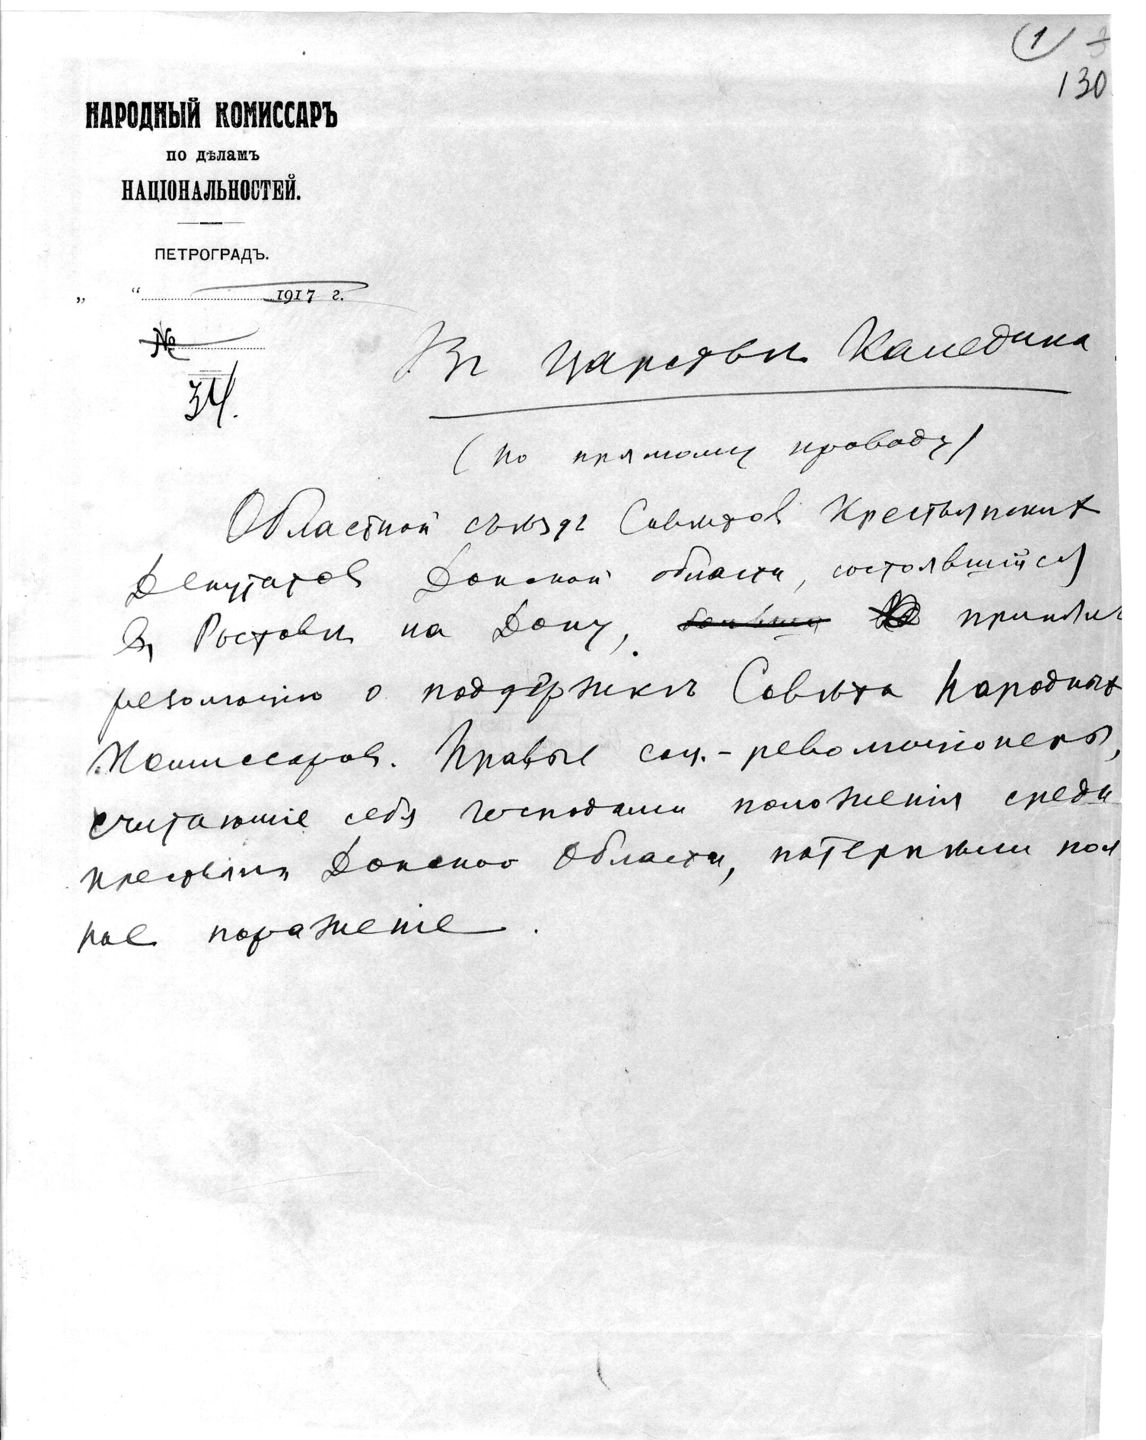 1 3
130
НАРОДНЫЙ КОМИССАРЪ
ПО ДѢЛАМЪ
НАЦІОНАЛЬНОСТЕЙ.
ПЕТРОГРАДЪ.
„ “ 1917 г.
№
34.
Въ царствѣ Каледина
(по прямому проводу)
Областной съѣздъ Совѣтов Крестьянских
Депутатов Донской области, состоявшійся
въ Ростовѣ на Дону, принял
резолюцію о поддержкѣ Совѣта Народных
Комиссаров. Правые соц.-революціонеры,
считающіе себя господами положенія среди
крестьян Донской Области, потерпѣли пол
ное пораженіе.